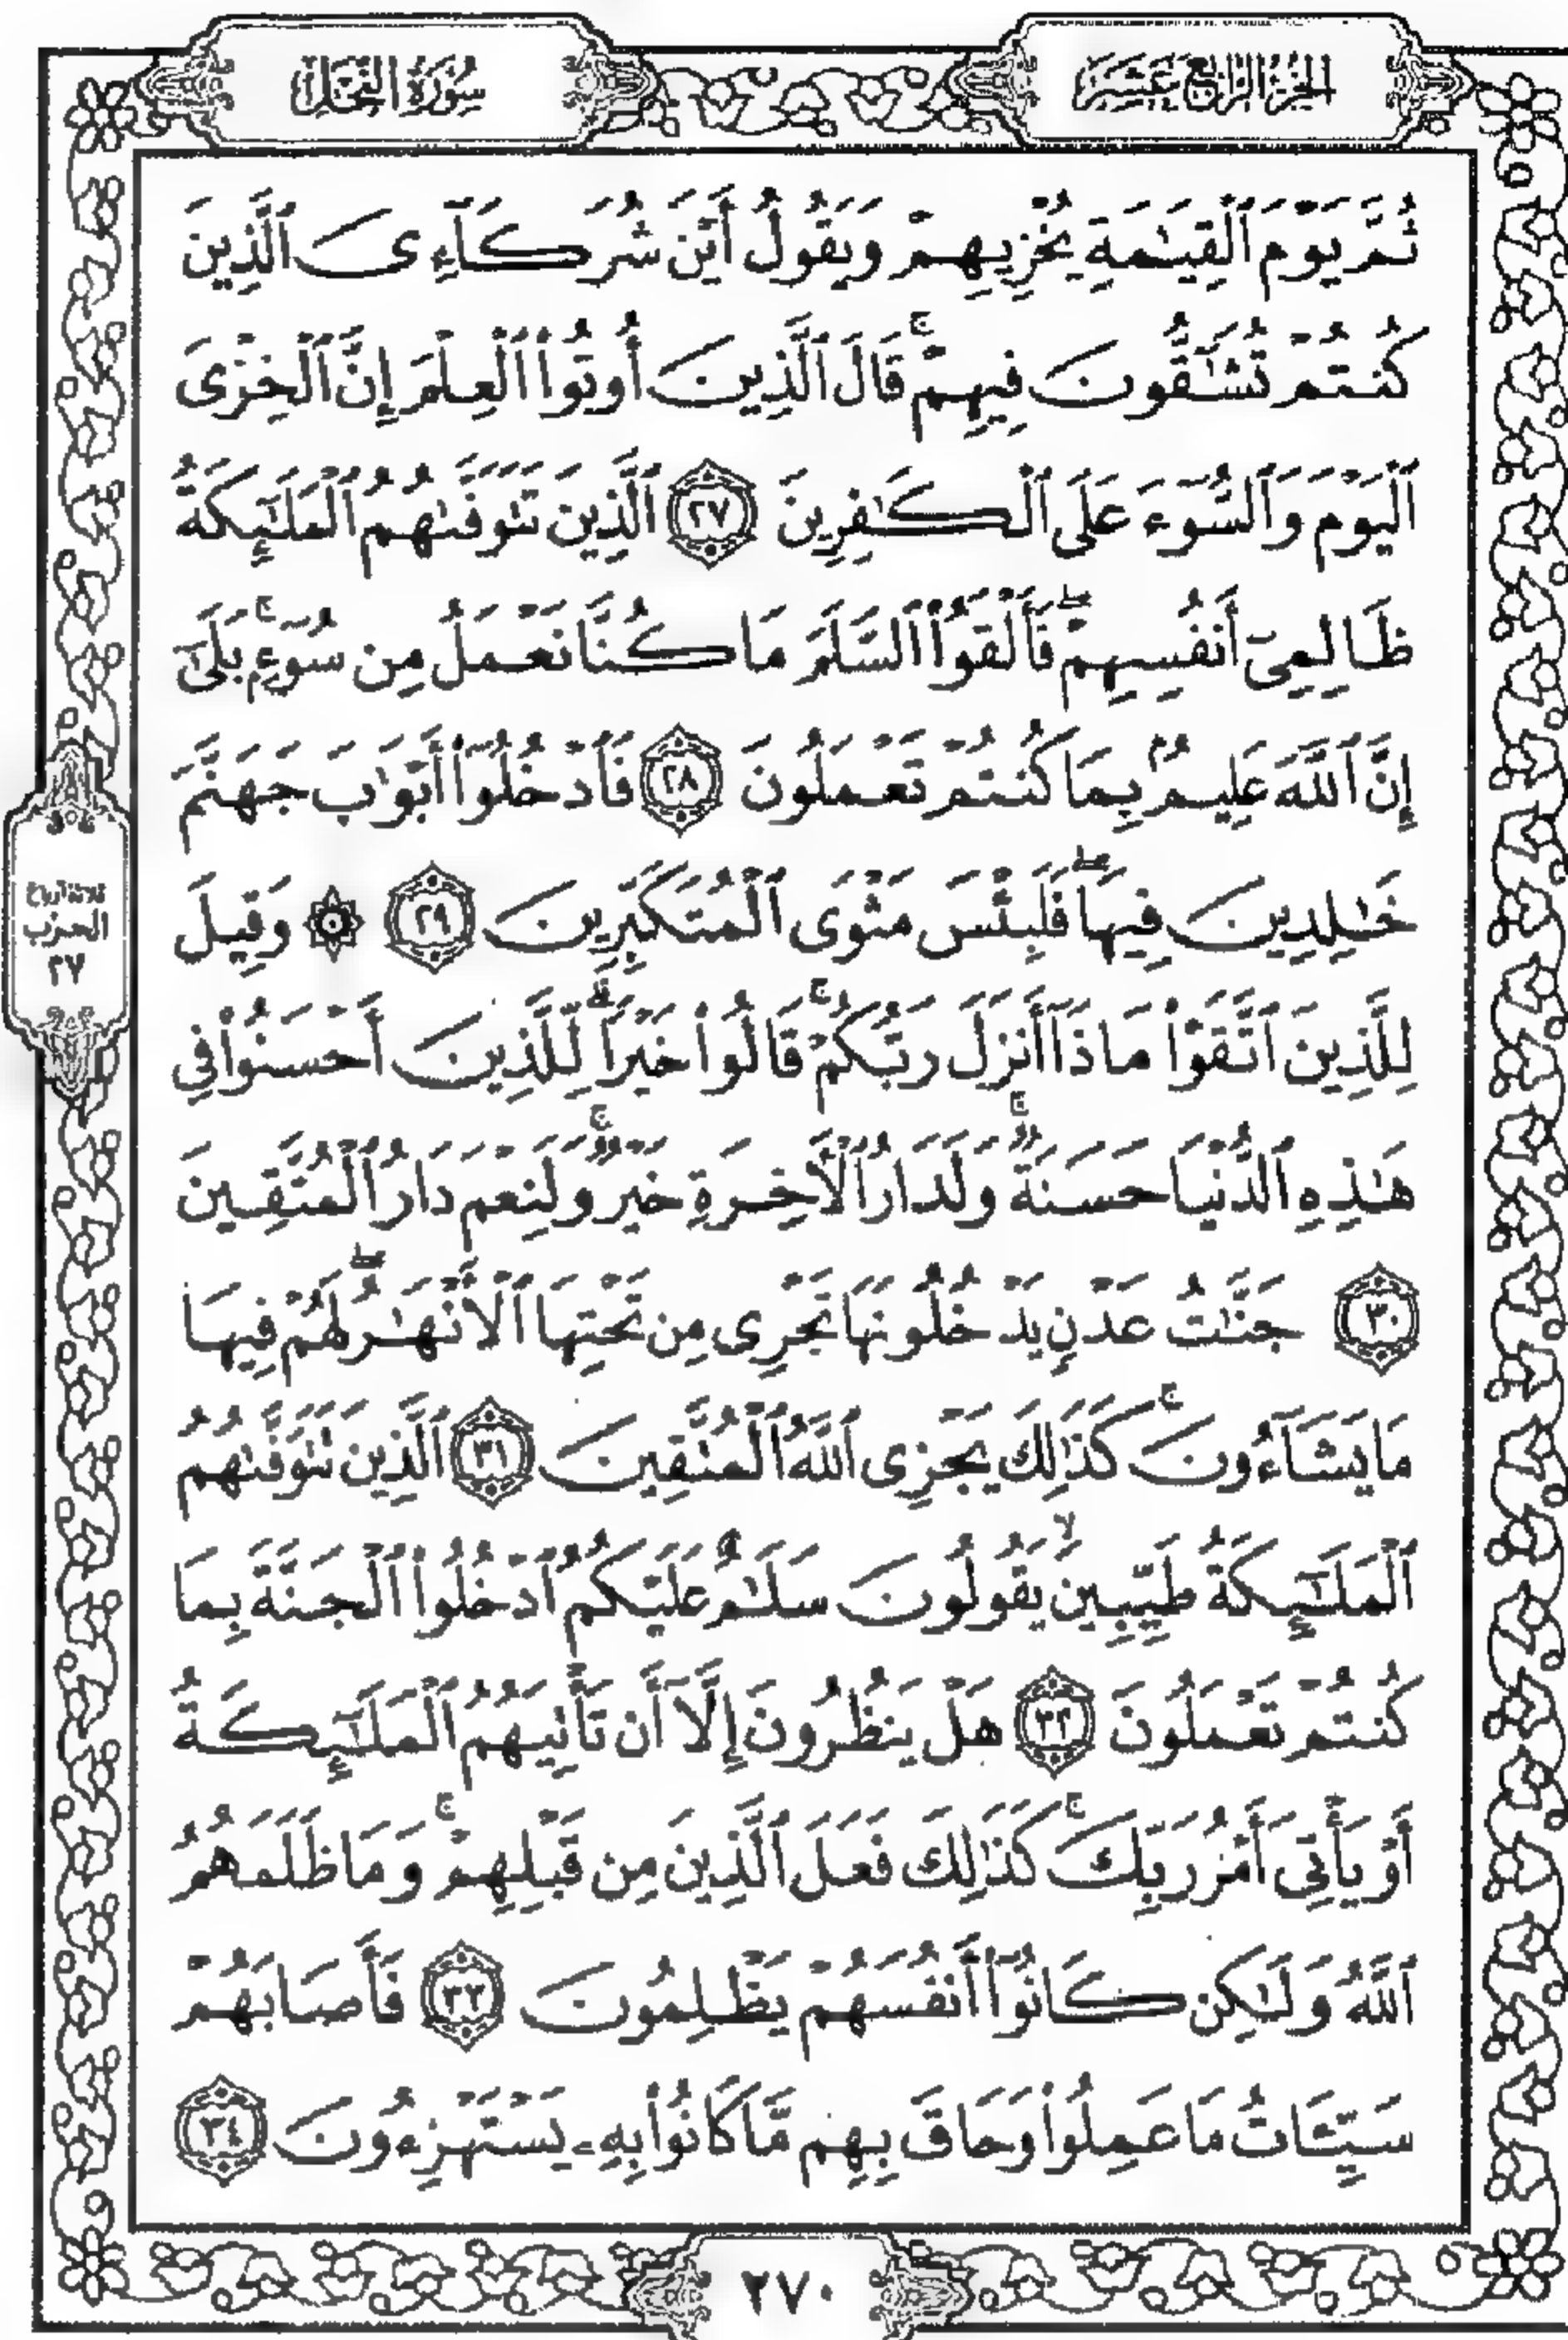 الجزء الرابع عشر
سورة النحل
ثُمَّ يَوْمَ ٱلْقِيَـٰمَةِ يُخْزِيهِمْ وَيَقُولُ أَيْنَ شُرَكَآءِىَ ٱلَّذِينَ
كُنتُمْ تُشَـٰٓقُّونَ فِيهِمْ ۚ قَالَ ٱلَّذِينَ أُوتُوا۟ ٱلْعِلْمَ إِنَّ ٱلْخِزْىَ
ٱلْيَوْمَ وَٱلسُّوٓءَ عَلَى ٱلْكَـٰفِرِينَ ٢٧ ٱلَّذِينَ تَتَوَفَّىٰهُمُ ٱلْمَلَـٰٓئِكَةُ
ظَالِمِىٓ أَنفُسِهِمْ ۖ فَأَلْقَوُا۟ ٱلسَّلَمَ مَا كُنَّا نَعْمَلُ مِن سُوٓءٍۭ ۚ بَلَىٰٓ
إِنَّ ٱللَّهَ عَلِيمٌۢ بِمَا كُنتُمْ تَعْمَلُونَ ٢٨ فَٱدْخُلُوٓا۟ أَبْوَٰبَ جَهَنَّمَ
خَـٰلِدِينَ فِيهَا ۖ فَلَبِئْسَ مَثْوَى ٱلْمُتَكَبِّرِينَ ٢٩ ۞ وَقِيلَ
لِلَّذِينَ ٱتَّقَوْا۟ مَاذَآ أَنزَلَ رَبُّكُمْ ۚ قَالُوا۟ خَيْرًا ۗ لِّلَّذِينَ أَحْسَنُوا۟ فِى
هَـٰذِهِ ٱلدُّنْيَا حَسَنَةٌ ۚ وَلَدَارُ ٱلْـَٔاخِرَةِ خَيْرٌ ۚ وَلَنِعْمَ دَارُ ٱلْمُتَّقِينَ
٣٠ جَنَّـٰتُ عَدْنٍ يَدْخُلُونَهَا تَجْرِى مِن تَحْتِهَا ٱلْأَنْهَـٰرُ ۖ لَهُمْ فِيهَا
مَا يَشَآءُونَ ۚ كَذَٰلِكَ يَجْزِى ٱللَّهُ ٱلْمُتَّقِينَ ٣١ ٱلَّذِينَ تَتَوَفَّىٰهُمُ
ٱلْمَلَـٰٓئِكَةُ طَيِّبِينَ ۙ يَقُولُونَ سَلَـٰمٌ عَلَيْكُمُ ٱدْخُلُوا۟ ٱلْجَنَّةَ بِمَا
كُنتُمْ تَعْمَلُونَ ٣٢ هَلْ يَنظُرُونَ إِلَّآ أَن تَأْتِيَهُمُ ٱلْمَلَـٰٓئِكَةُ
أَوْ يَأْتِىَ أَمْرُ رَبِّكَ ۚ كَذَٰلِكَ فَعَلَ ٱلَّذِينَ مِن قَبْلِهِمْ ۚ وَمَا ظَلَمَهُمُ
ٱللَّهُ وَلَـٰكِن كَانُوٓا۟ أَنفُسَهُمْ يَظْلِمُونَ ٣٣ فَأَصَابَهُمْ
سَيِّـَٔاتُ مَا عَمِلُوا۟ وَحَاقَ بِهِم مَّا كَانُوا۟ بِهِۦ يَسْتَهْزِءُونَ ٣٤
ثلاثة أرباع
الحزب
٢٧
٢٧٠